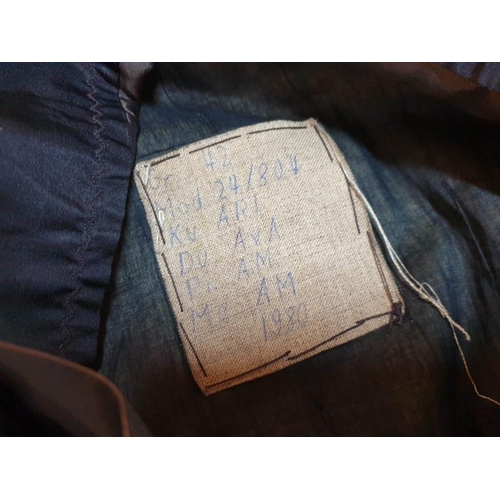 Gr 42
Mod 24/804
Ku ART
Du AvA
Pr AM
Ma AM
1980